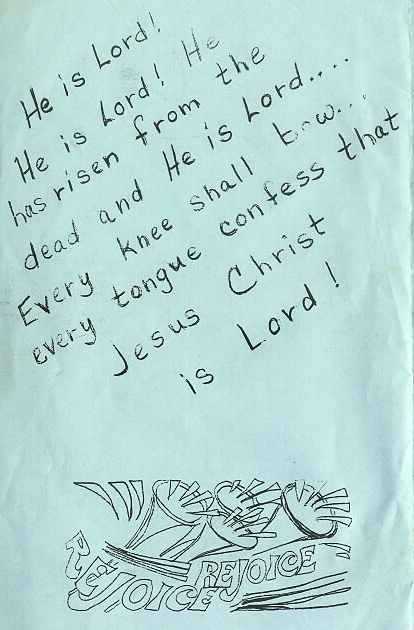 He is Lord!
He is Lord! He
has risen from the
dead and He is Lord....
Every knee shall bow...
every tongue confess that
Jesus Christ
is Lord!
REJOICE
REJOICE
REJOICE